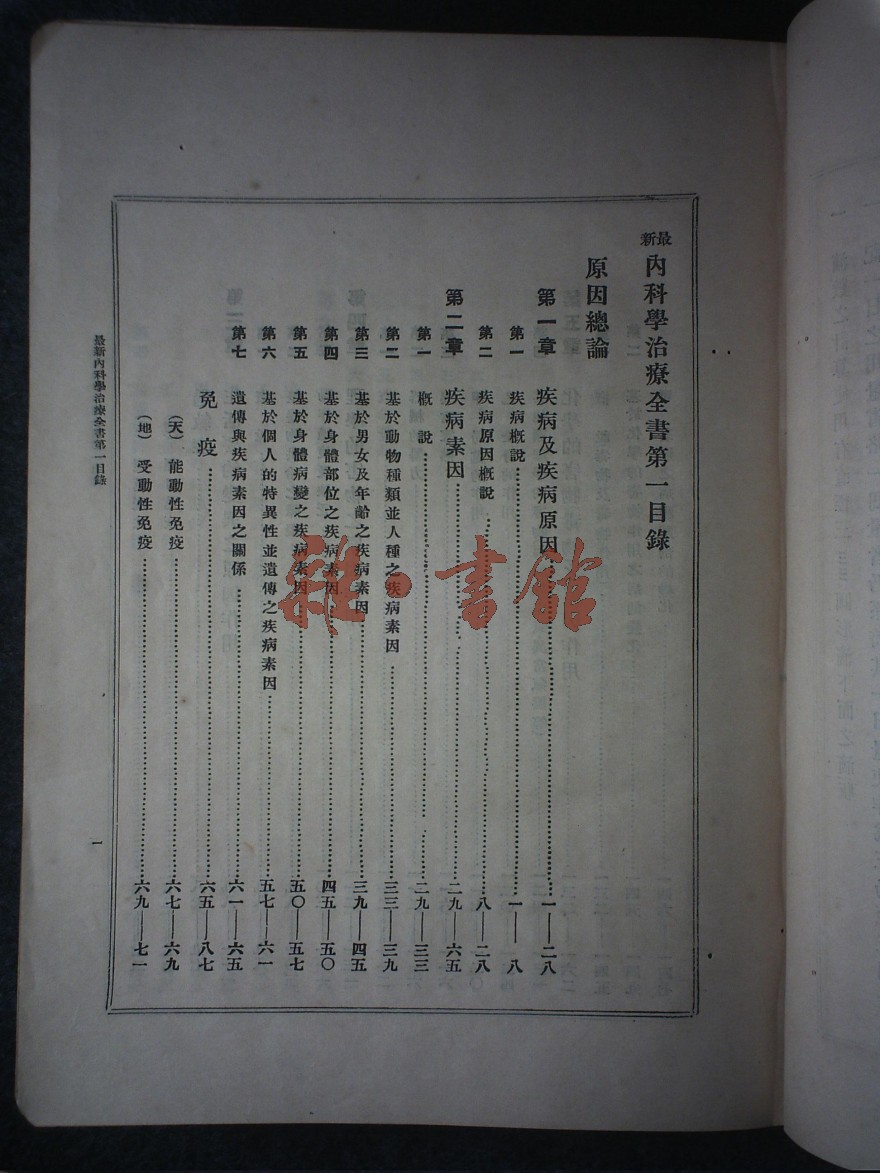 最新內科學治療全書第一目錄
原因總論
第一章　疾病及疾病原因……一——二八
第一　疾病概說……一——八
第二　疾病原因概說……八——二八
第二章　疾病素因……二九——六五
第一　概說……二九——三三
第二　基於動物種類並人種之疾病素因……三三——三九
第三　基於男女及年齡之疾病素因……三九——四五
第四　基於身體部位之疾病素因……四五——五〇
第五　基於身體病變之疾病素因……五〇——五七
第六　基於個人的特異性並遺傳之疾病素因……五七——六一
第七　遺傳與疾病素因之關係……六一——六五
免疫……六五——八七
（天）能動性免疫……六七——六九
（地）受動性免疫……六九——七一
最新內科學治療全書第一目錄　一
雜·書館